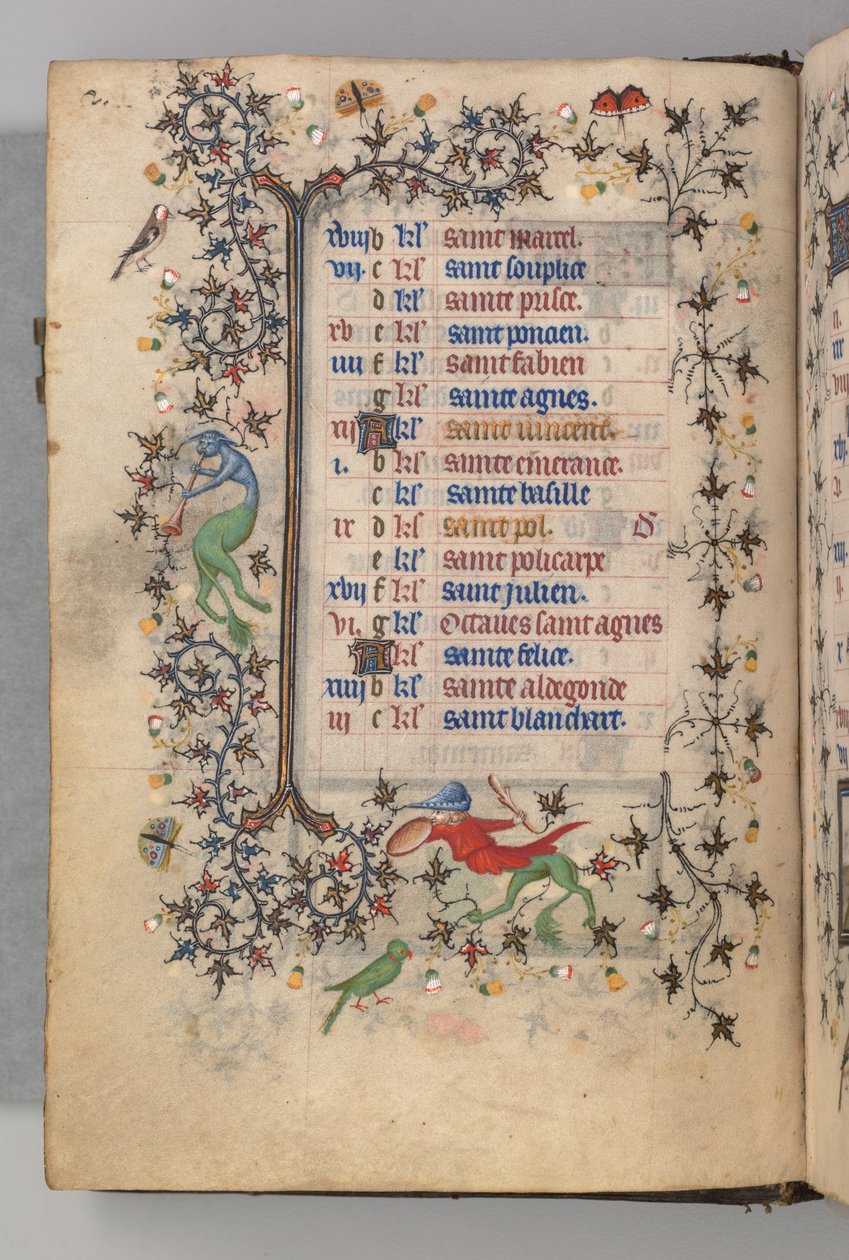 xviij b kl' saint marcel.
vij. c kl' saint souplice
d kl' sainte prisce.
xv e kl' saint poncien.
iiij f kl' saint fabien
g kl' sainte agnes.
xij A kl' saint vincent.
i. b kl' sainte emerance.
c kl' sainte basille
ix d kl' saint pol. D
e kl' saint policarpe
xvij f kl' saint julien.
vi. g kl' Octaues saint agnes
A kl' sainte felice.
xiiij b kl' sainte aldegonde
iij c kl' saint blanchart.